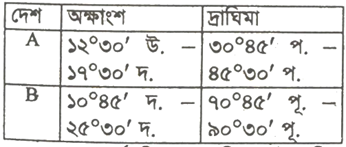 দেশ অক্ষাংশ দ্রাঘিমা
A ১২°৩০′ উ. – ৩০°৪৫′ প. –
১৭°৩০′ দ. ৪৫°৩০′ প.
B ১০°৪৫′ দ. – ৭০°৪৫′ পূ. –
২৫°৩০′ দ. ৯০°৩০′ পূ.